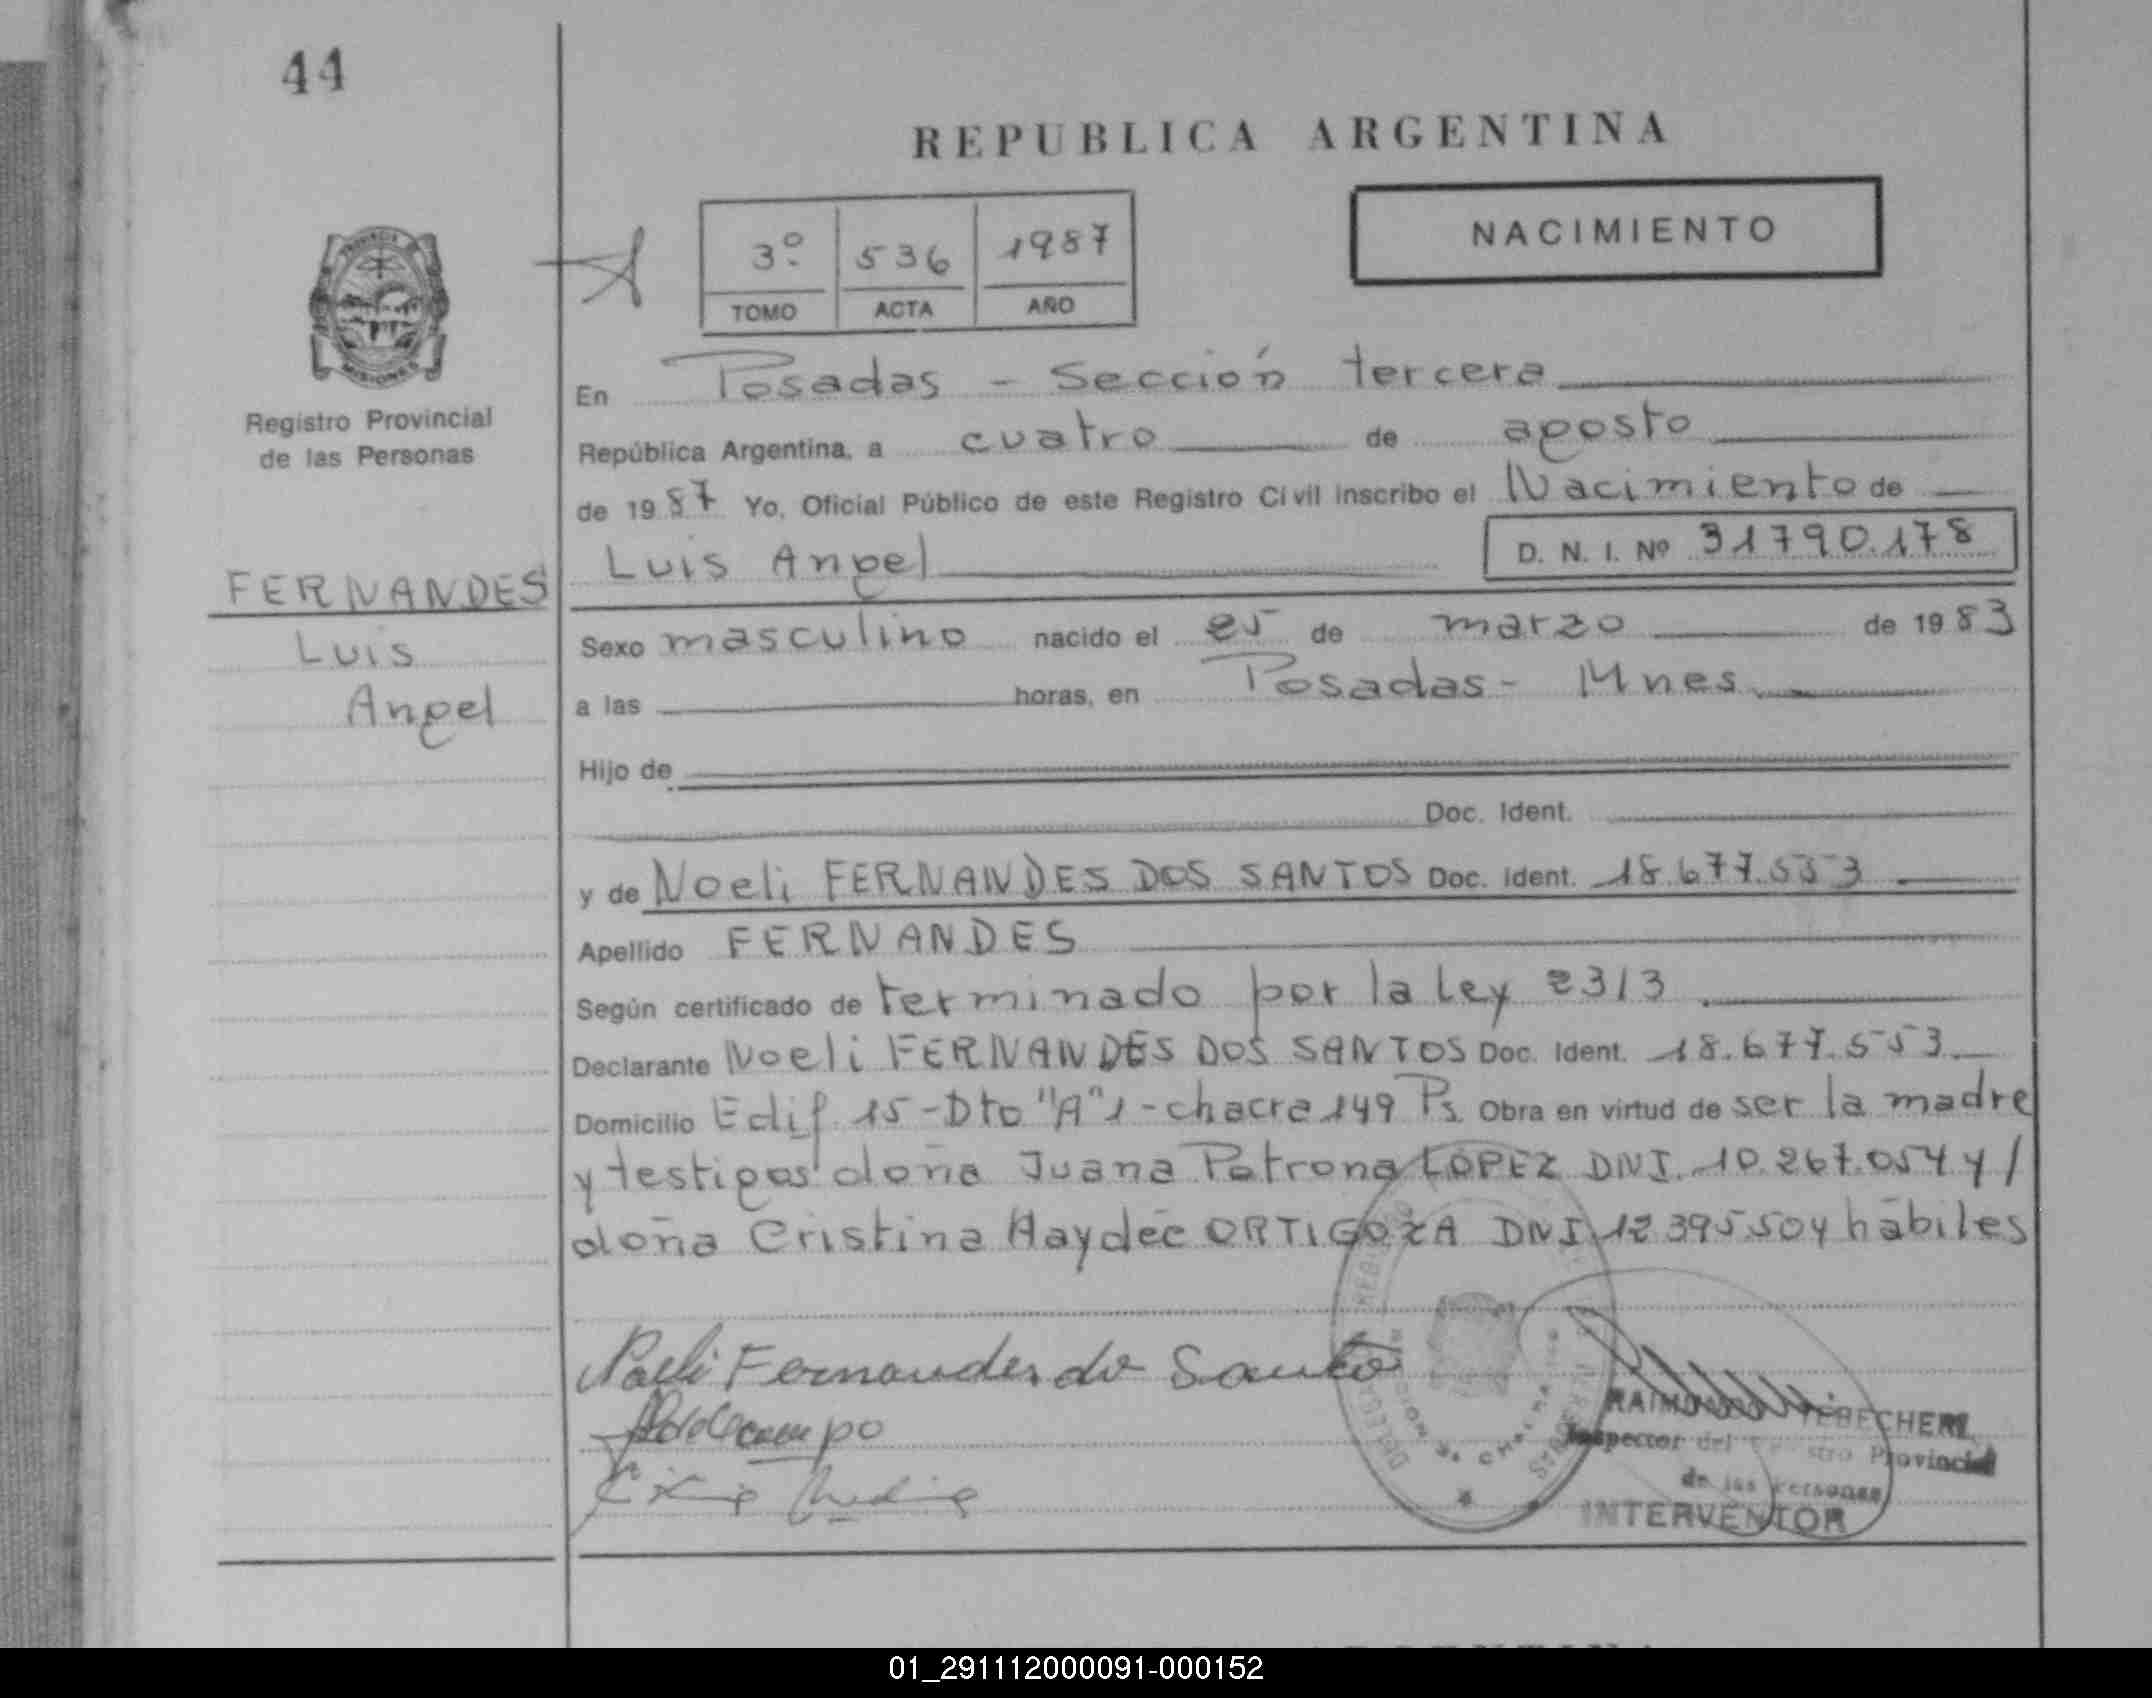 44
REPUBLICA ARGENTINA
3º 536 1987
TOMO ACTA AÑO
NACIMIENTO
PROVINCIA
MISIONES
Registro Provincial
de las Personas
FERNANDES
Luis
Angel
En Posadas - Sección tercera
República Argentina, a cuatro de agosto
de 1987 Yo, Oficial Público de este Registro Civil inscribo el Nacimiento de
Luis Angel D. N. I. Nº 31790.178
Sexo masculino nacido el 25 de marzo de 1983
a las horas, en Posadas - Mnes.
Hijo de
Doc. Ident.
y de Noeli FERNANDES DOS SANTOS Doc. Ident. 18.677.553
Apellido FERNANDES
Según certificado de terminado por la Ley 2313
Declarante Noeli FERNANDES DOS SANTOS Doc. Ident. 18.677.553
Domicilio Edif. 15-Dto "A" 1-chacra 149 Ps. Obra en virtud de ser la madre
y testigos doña Juana Petrona LOPEZ DNI. 10.267.054 y/
doña Cristina Haydée ORTIGOZA DNI 12.395.504 hábiles
Noeli Fernandes do Santo
RAIMUNDO
Inspector del Registro Provincial
de las Personas
INTERVENTOR
01_291112000091-000152